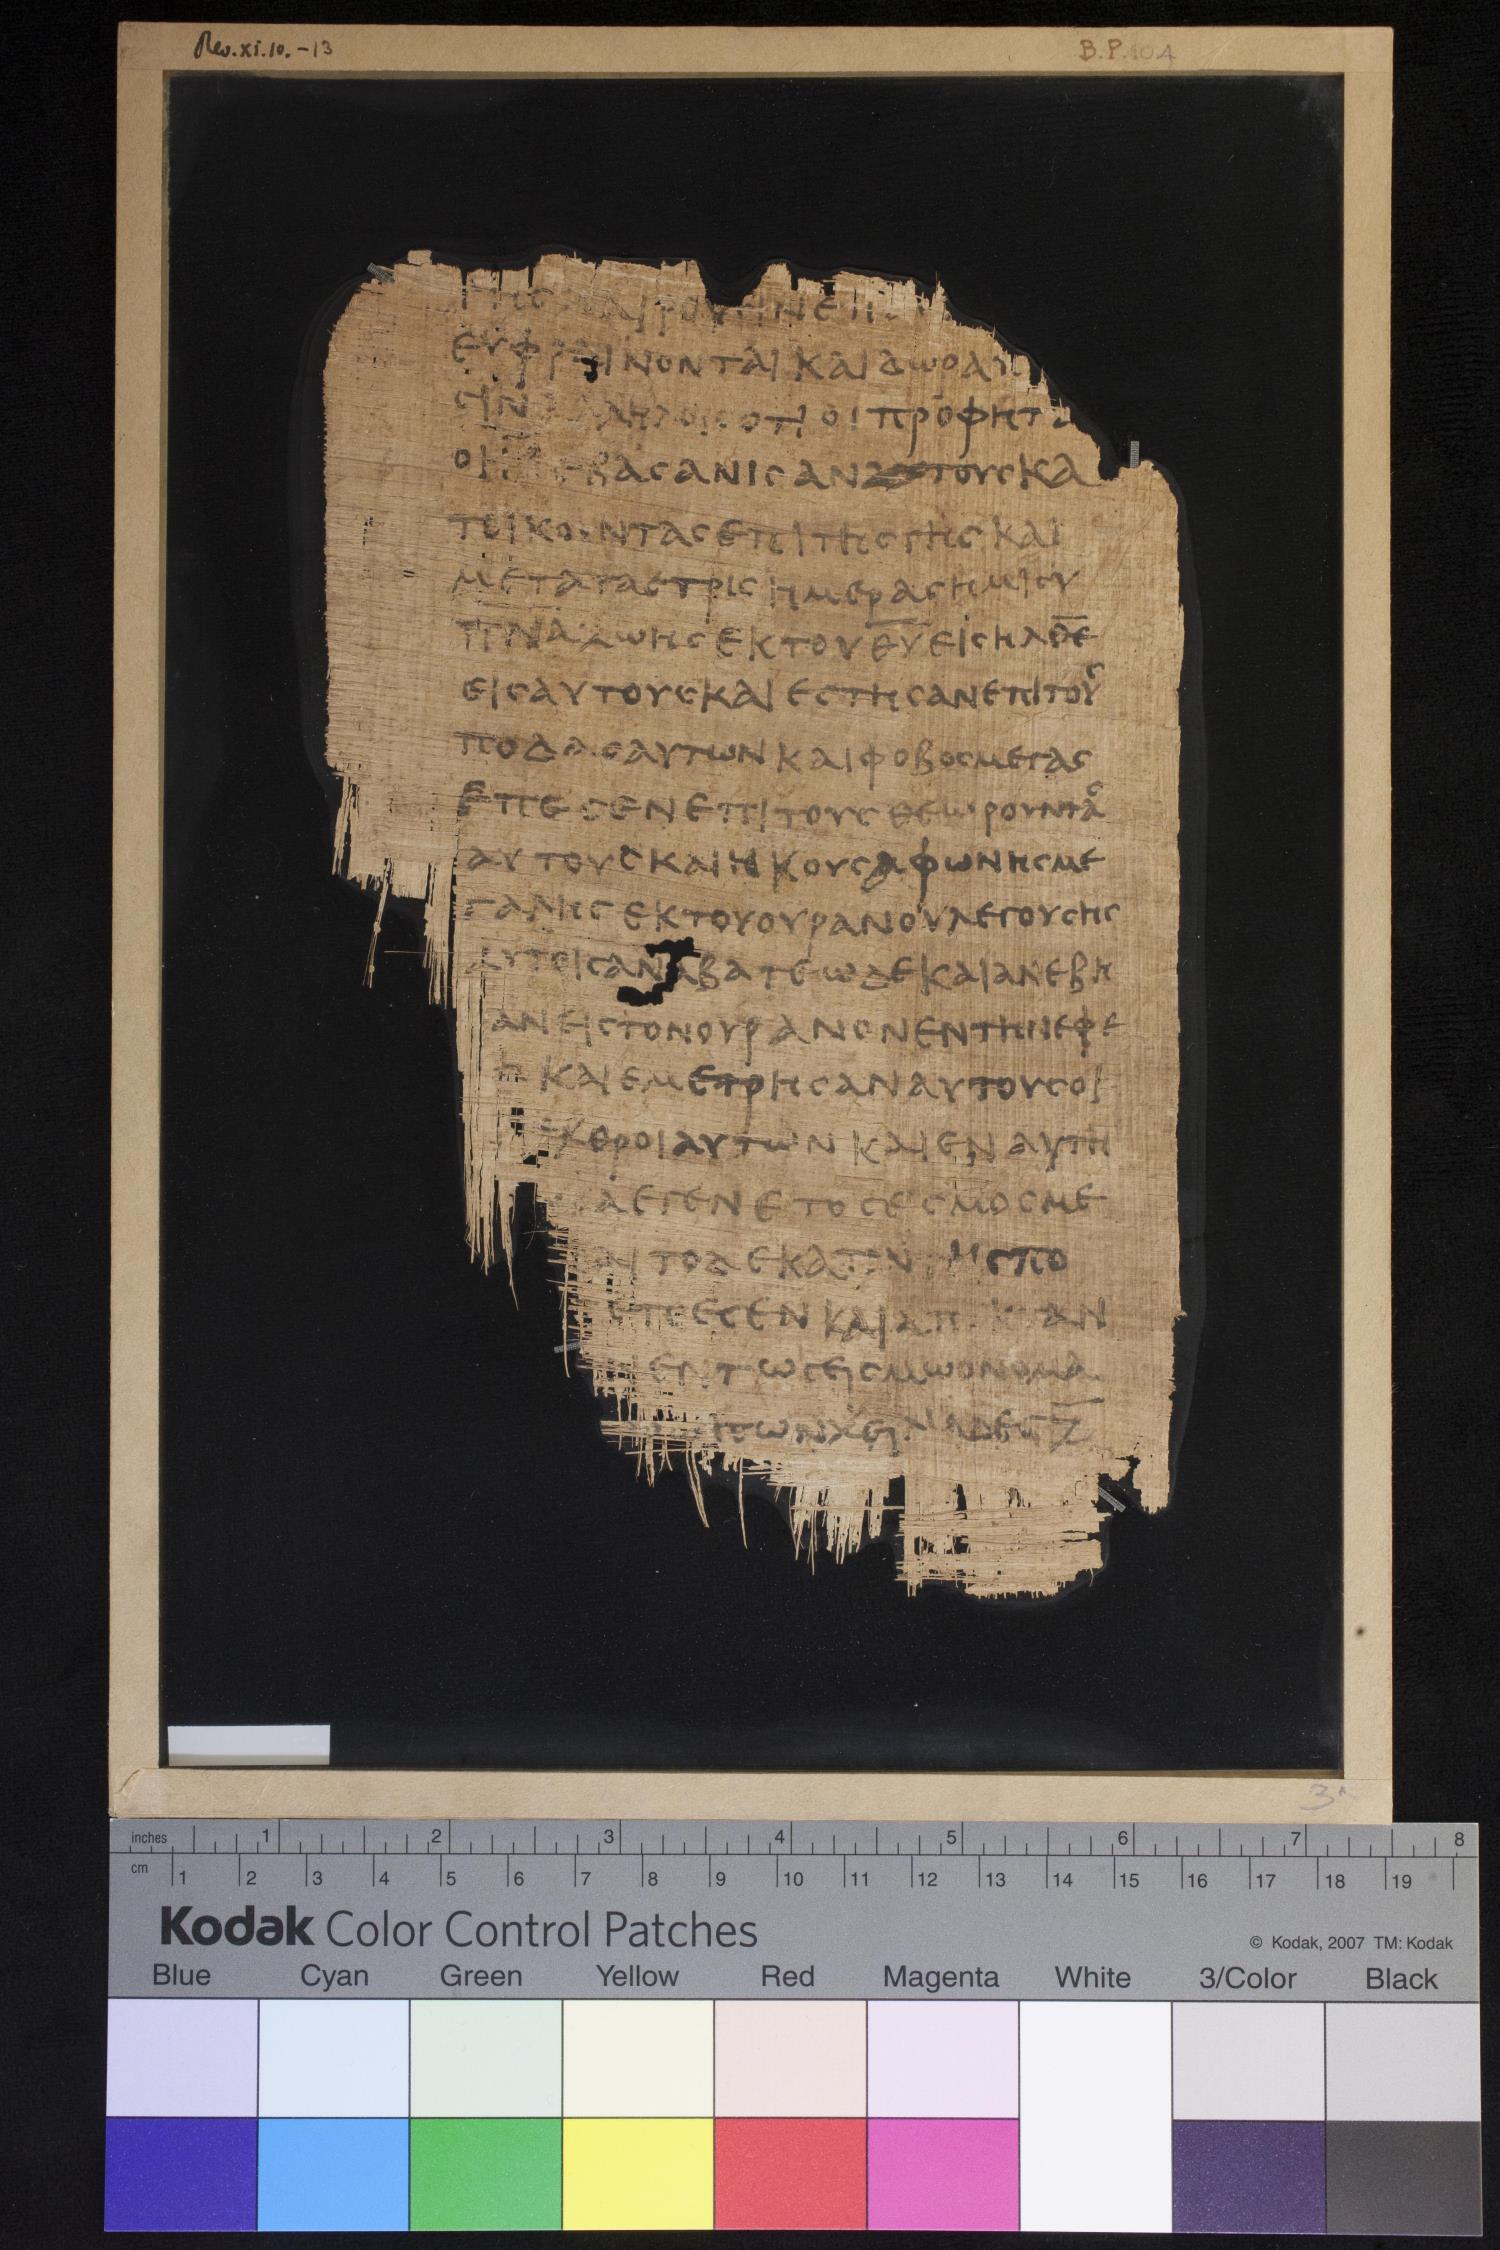 Rev. xi. 10. - 13
B.P. 104
ΕΥΦΡΑΙΝΟΝΤΑΙ ΚΑΙ ΔΩΡΑ
ΟΤΙ ΟΙ ΠΡΟΦΗΤΑ
ΕΒΑΣΑΝΙΣΑΝ ΤΟΥΣ ΚΑ
ΤΟΙΚΟΥΝΤΑΣ ΕΠΙ ΤΗΣ ΓΗΣ ΚΑΙ
ΜΕΤΑ ΤΑΣ ΤΡΙΣ ΗΜΕΡΑΣ ΗΜΙΣΥ
Π̅Ν̅Α̅ ΖΩΗΣ ΕΚ ΤΟΥ Θ̅Υ̅ ΕΙΣΗΛΘΕ
ΕΙΣ ΑΥΤΟΥΣ ΚΑΙ ΕΣΤΗΣΑΝ ΕΠΙ ΤΟΥΣ
ΠΟΔΑΣ ΑΥΤΩΝ ΚΑΙ ΦΟΒΟΣ ΜΕΓΑΣ
ΕΠΕΣΕΝ ΕΠΙ ΤΟΥΣ ΘΕΩΡΟΥΝΤΑΣ
ΑΥΤΟΥΣ ΚΑΙ ΗΚΟΥΣΑ ΦΩΝΗΣ ΜΕ
ΓΑΛΗΣ ΕΚ ΤΟΥ ΟΥΡΑΝΟΥ ΛΕΓΟΥΣΗΣ
ΑΥΤΟΙΣ ΑΝΑΒΑΤΕ ΩΔΕ ΚΑΙ ΑΝΕΒΗ
ΑΝ ΕΙΣ ΤΟΝ ΟΥΡΑΝΟΝ ΕΝ ΤΗ ΝΕΦΕ
ΚΑΙ ΕΜΕΤΡΗΣΑΝ ΑΥΤΟΥΣ ΟΙ
ΕΧΘΡΟΙ ΑΥΤΩΝ ΚΑΙ ΕΝ ΑΥΤΗ
Α ΕΓΕΝΕΤΟ ΣΕΣΜΟΣ ΜΕ
ΑΙ ΤΟ ΔΕΚΑΤΟΝ ΤΗΣ ΠΟ
ΕΠΕΣΕΝ ΚΑΙ ΑΠΕΚΤΑΝ
ΕΝ ΤΩ ΣΕΙΣΜΩ ΟΝΟΜΑ
ΠΩΝ ΧΕΙΛΙΑΔΕΣ Ζ̅
3
inches 1 2 3 4 5 6 7 8
cm 1 2 3 4 5 6 7 8 9 10 11 12 13 14 15 16 17 18 19
Kodak Color Control Patches
© Kodak, 2007 TM: Kodak
Blue Cyan Green Yellow Red Magenta White 3/Color Black